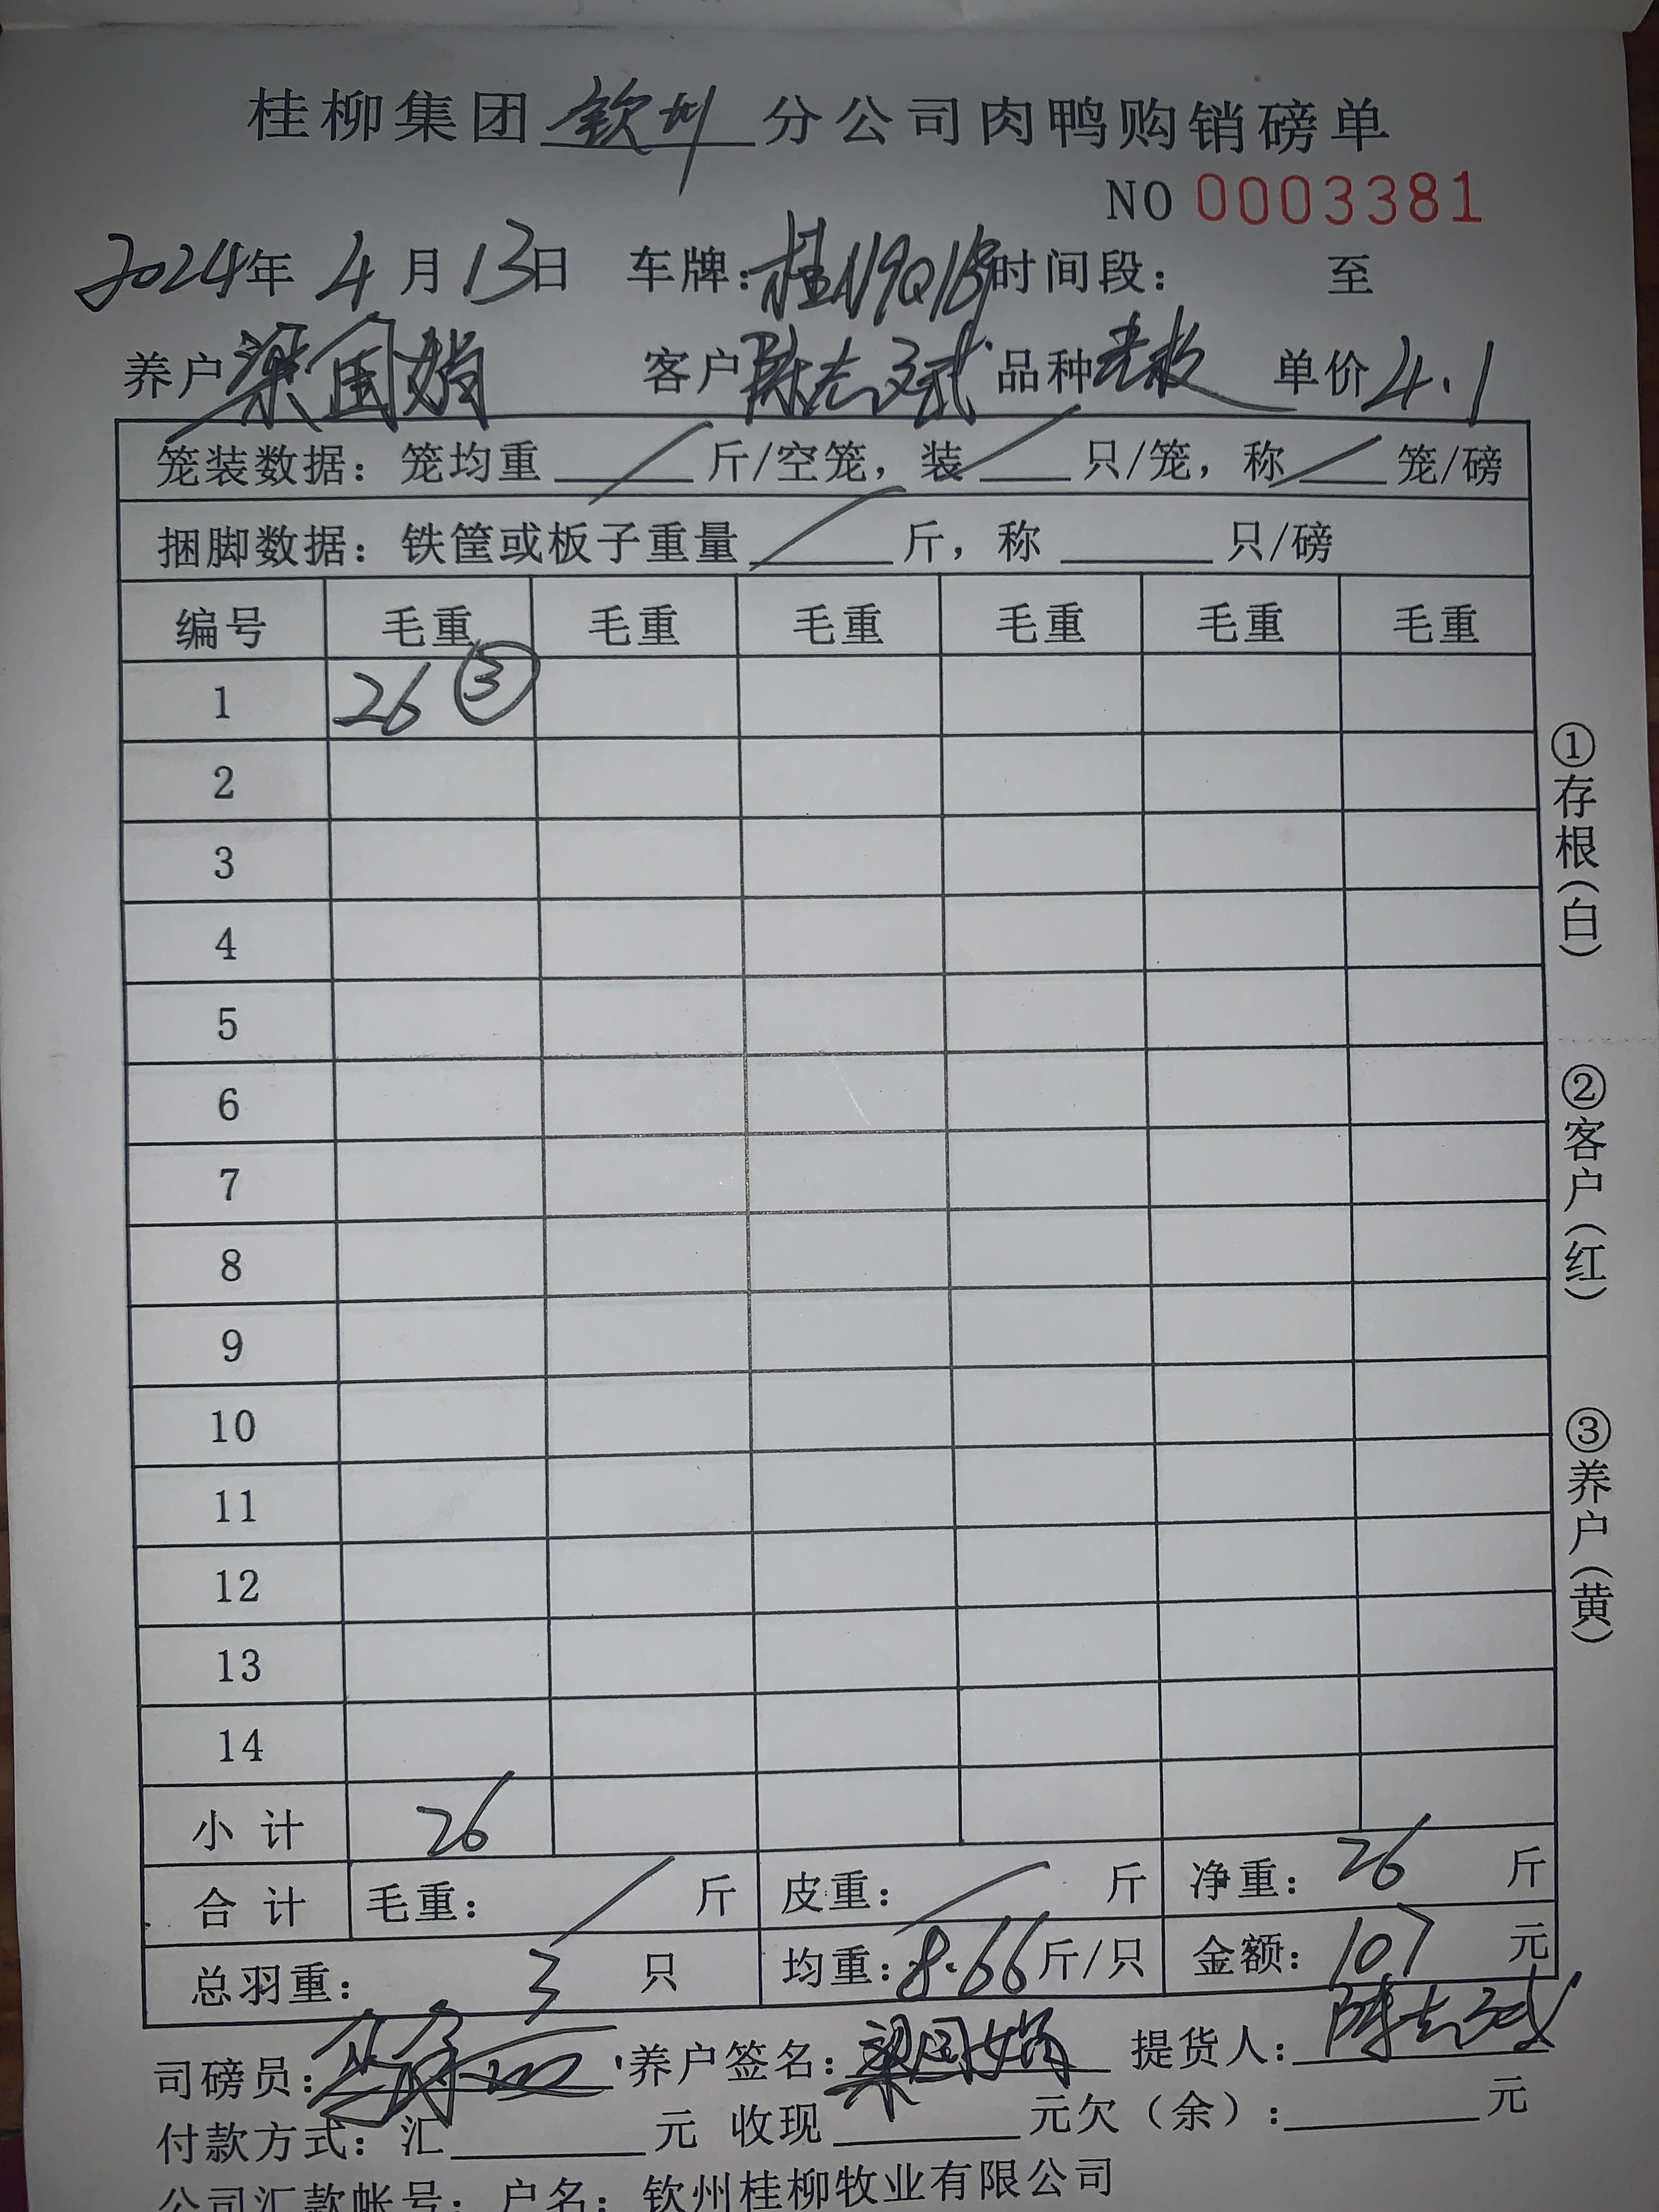 桂柳集团 钦州 分公司肉鸭购销磅单
NO 0003381
2024年 4月 13日 车牌: 桂N9Q1B9 时间段: 至
养户 梁国娟 客户 陈志斌 品种 单价 4.1
笼装数据: 笼均重 斤/空笼, 装 只/笼, 称 笼/磅
捆脚数据: 铁筐或板子重量 斤, 称 只/磅
编号 毛重 毛重 毛重 毛重 毛重 毛重
1 26 ③
2
3
4
5
6
7
8
9
10
11
12
13
14
小计 26
合计 毛重: 斤 皮重: 斤 净重: 26 斤
总羽重: 3 只 均重: 8.66 斤/只 金额: 107 元
司磅员: 养户签名: 梁国娟 提货人: 陈志斌
付款方式: 汇 元 收现 元欠(余): 元
公司汇款帐号: 户名: 钦州桂柳牧业有限公司
①存根(白)
②客户(红)
③养户(黄)